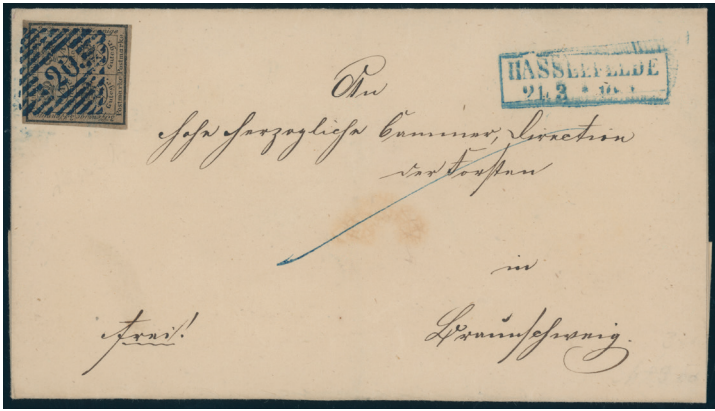 20
HASSELFELDE
24 3
An
hohe herzogliche Cammer, Direction
der Forsten
in
frei!
Braunschweig.